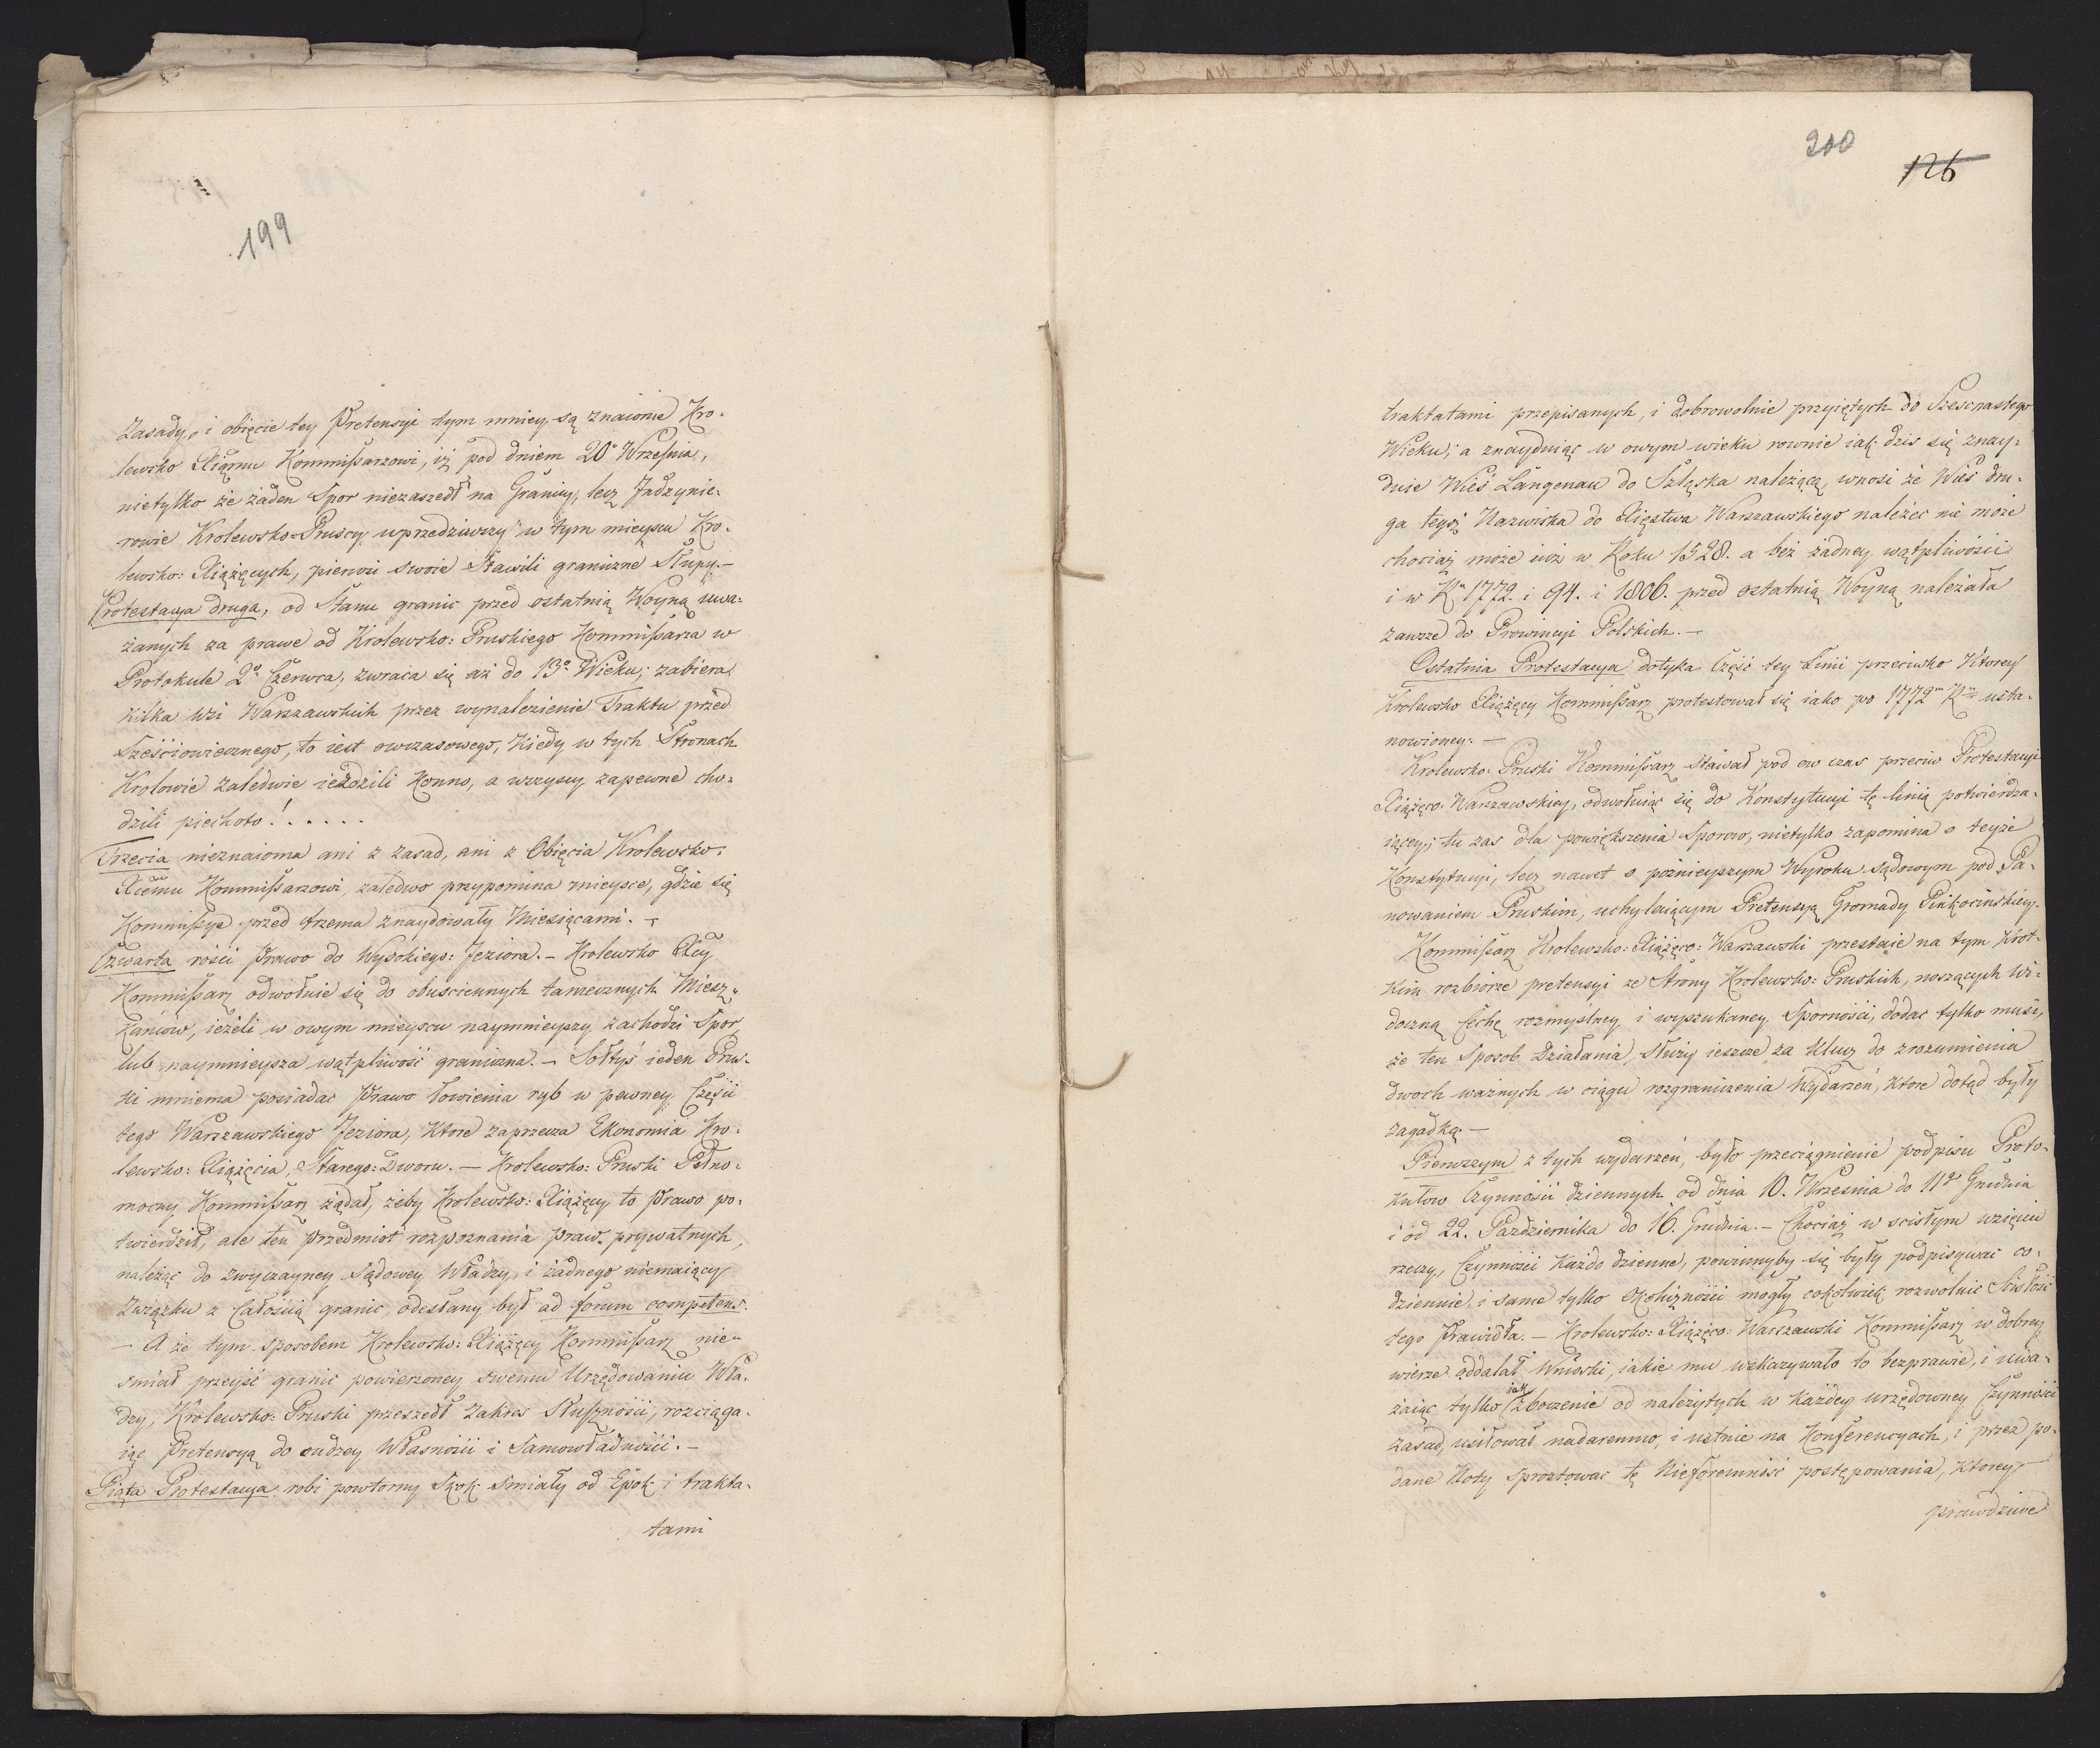 199
Zasady, i obięcie tey Pretensyi tym mniey są znaiome Kro-
lewsko Xiążmu Kommissarzowi, iż pod dniem 20° Września,
nietylko że żaden Spor niezaszedł na Granicy, lecz Jndzynie-
rowie Krolewsko=Pruscy uprzedziwszy w tym mieyscu Kro-
lewsko: Xiążęcych, pierwsi swoie stawili graniczne Słupy.-
Protestacya druga, od Stanu granic przed ostatnią Woyną uwa-
żanych za prawe od Krolewsko: Pruskiego Kommissarza w
Protokule 2° Czerwca, zwraca się aż do 13° Wieku; zabiera
kilka Wsi Warszawskich przez wynalezienie Traktu przed
Sześciowiecznego, to iest owczasowego, kiedy w tych Stronach
Krolowie zaledwie ieździli konno, a wszyscy zapewne cho-
dzili piechoto! . . . . .
Trzecia nieznaioma ani z zasad, ani z Obięcia Krolewsko:
Xcemu Kommissarzowi, zaledwo przypomina mieysce, gdzie się
Kommissye przed trzema znaydowały Miesiącami. -
Czwarta rości Prawo do Wysokiego: Jeziora. - Krolewsko Xcy
Kommissarz odwołuie się do obuściennych tamecznych Miesz-
kańcow, ieżeli w owym mieyscu naymnieyszy zachodzi Spor
lub naymnieysza wątpliwość graniczna. - Sołtys ieden Prus-
ki mniema posiadać Prawo łowienia ryb w pewney Części
tego Warszawskiego Jeziora, ktore zaprzecza Ekonomia Kro-
lewsko: Xiążęcia, Starego: Dworu. - Krolewsko: Pruski Pełno-
mocny Kommissarz żądał, żeby Krolewsko: Xiążęcy to Prawo po-
twierdził, ale ten Przedmiot rozpoznania praw prywatnych,
należąc do zwyczayney Sądowey Władzy, i żadnego niemaiący
Związku z Całością granic, odesłany był ad forum competens.
- A że tym sposobem Krolewsko: Xiążęcy Kommissarz nie-
śmiał przeyść granic powierzoney swemu Urzędowaniu Wła-
dzy, Krolewsko: Pruski przeszedł Zakres Słuszności, rozciąga-
iąc Pretensyą do cudzey Własności i Samowładności. -
Piąta Protestacya robi powtorny Skok śmiały od Epok i trakta-
tami
200
126
traktatami przepisanych, i dobrowolnie przyiętych do Szesnastego
Wieku; a znayduiąc w owym wieku rownie iak dziś się znay-
duie Wieś Langenau do Szląska należącą, wnosi że Wieś dru-
ga tegoż Nazwiska do Xięstwa Warszawskiego należeć nie może
chociaż może iuż w Roku 1528. a bez żadney wątpliwości
i w Ru 1772. i 94. i 1806. przed ostatnią Woyną należała
zawsze do Prowincyi Polskich. -
Ostatnia Protestacya dotyka Część tey Linii przeciwko ktorey
Krolewsko Xiążęcy Kommissarz protestował się iako po 1772m Rku usta-
nowioney. -
Krolewsko: Pruski Kommissarz stawał pod ow czas przeciw Protestacyi
Xiążęco: Warszawskiey, odwołuiąc się do Konstytucyi tę linią potwierdza-
iącey; tu zas dla powiększenia Sporow, nietylko zapomina o teyże
Konstytucyi, lecz nawet o poźnieyszym Wyroku Sądowym pod Pa-
nowaniem Pruskim, uchylaiącym Pretensyą Gromady Pinkocinskiey.
Kommissarz Krolewsko: Xiążęco: Warszawski przestaie na tym krot-
kim rozbiorze pretensyi ze strony Krolewsko: Pruskich, noszących wi-
doczną Cechę rozmyslney i wyszukaney Sporności, dodać tylko musi,
że ten Sposob Działania, służy ieszcze za Klucz do zrozumienia
dwoch ważnych w ciągu rozgraniczenia Wydarzeń, ktore dotąd były
zagadką. -
Pierwszym z tych wydarzeń, było przeciągnienie podpisu Proto-
kułow Czynności dziennych od dnia 10. Września do 11go Grudnia
i od 22. Października do 16. Grudnia. - Chociaż w ścisłym wzięciu
rzeczy, Czynności każdo dzienne, powinnyby się były podpisywać co-
dziennie, i same tylko Okoliczności mogły cokolwiek rozwolnić Ścisłość
tego Prawidła. - Krolewsko: Xiążęco: Warszawski Kommissarz w dobrey
wierze oddalał Wnioski, iakie mu wskazywało to bezprawie, i uwa-
żaiąc tylko iak zboczenie od należytych w każdey urzędowney Czynności
zasad, usiłował nadaremno, i ustnie na Konferencyach, i przez po-
dane Noty sprostować tę Nieforemność postępowania, ktorey
prawdziwe